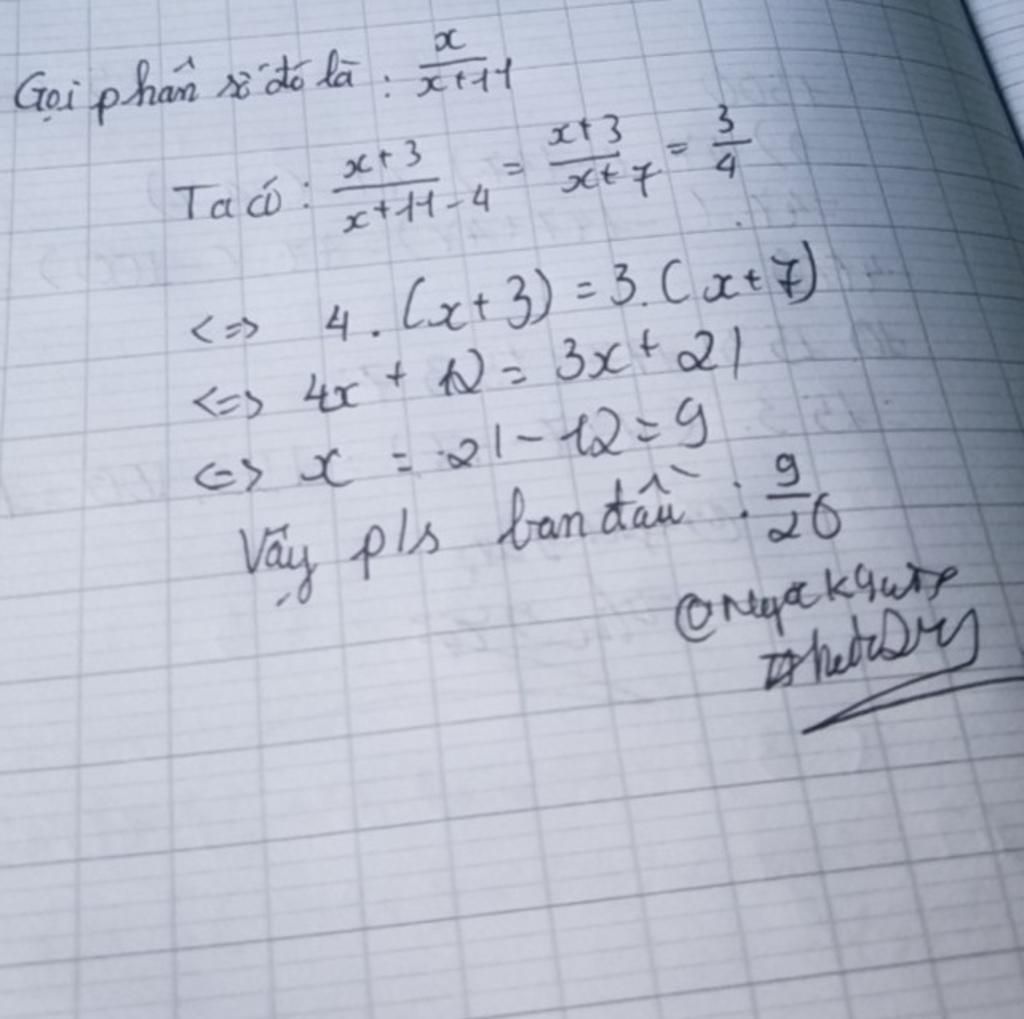 Gọi phân số đó là : x/(x+11)
Ta có : (x+3)/(x+11-4) = (x+3)/(x+7) = 3/4
<=> 4 . (x+3) = 3 . (x+7)
<=> 4x + 12 = 3x + 21
<=> x = 21 - 12 = 9
Vậy p/s ban đầu : 9/20